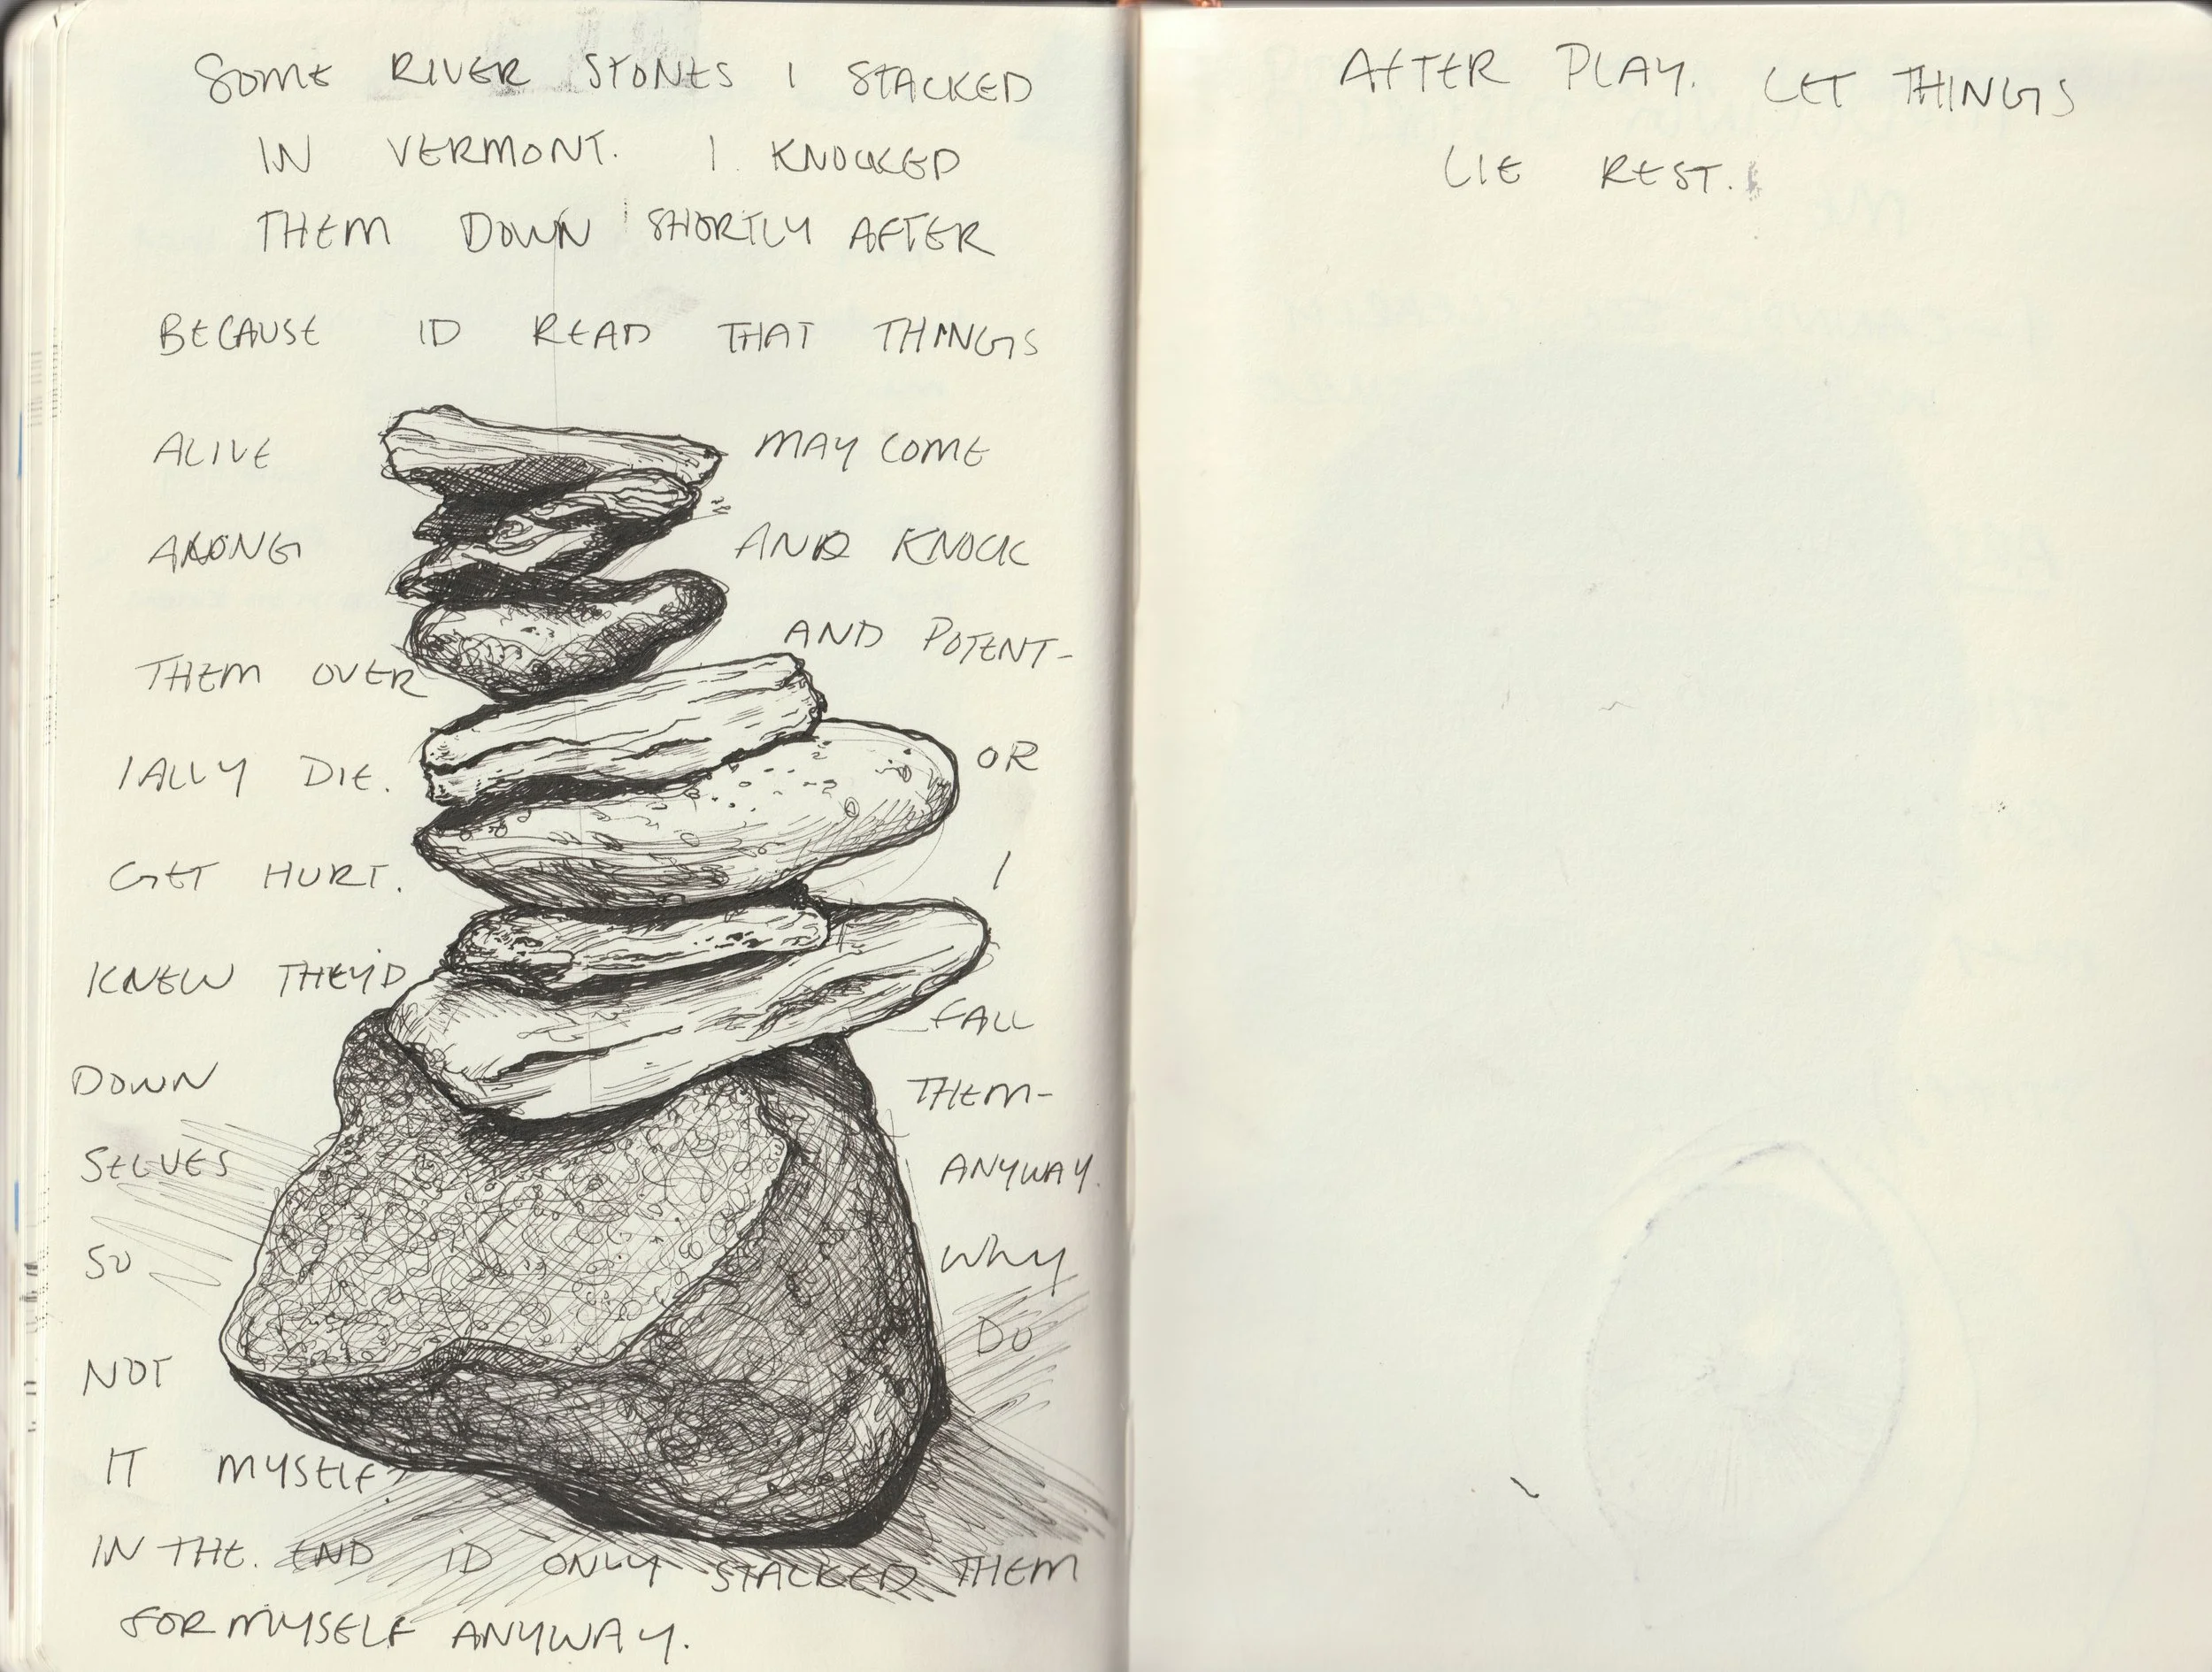 SOME RIVER STONES I STACKED
IN VERMONT. I KNOCKED
THEM DOWN SHORTLY AFTER
BECAUSE ID READ THAT THINGS
ALIVE MAY COME
ALONG AND KNOCK
THEM OVER AND POTENT-
IALLY DIE. OR
GET HURT. I
KNEW THEY'D FALL
DOWN THEM-
SELVES ANYWAY.
SO WHY
NOT DO
IT MYSELF?
IN THE. END ID ONLY STACKED THEM
FOR MYSELF ANYWAY.
AFTER PLAY. LET THINGS
LIE REST.